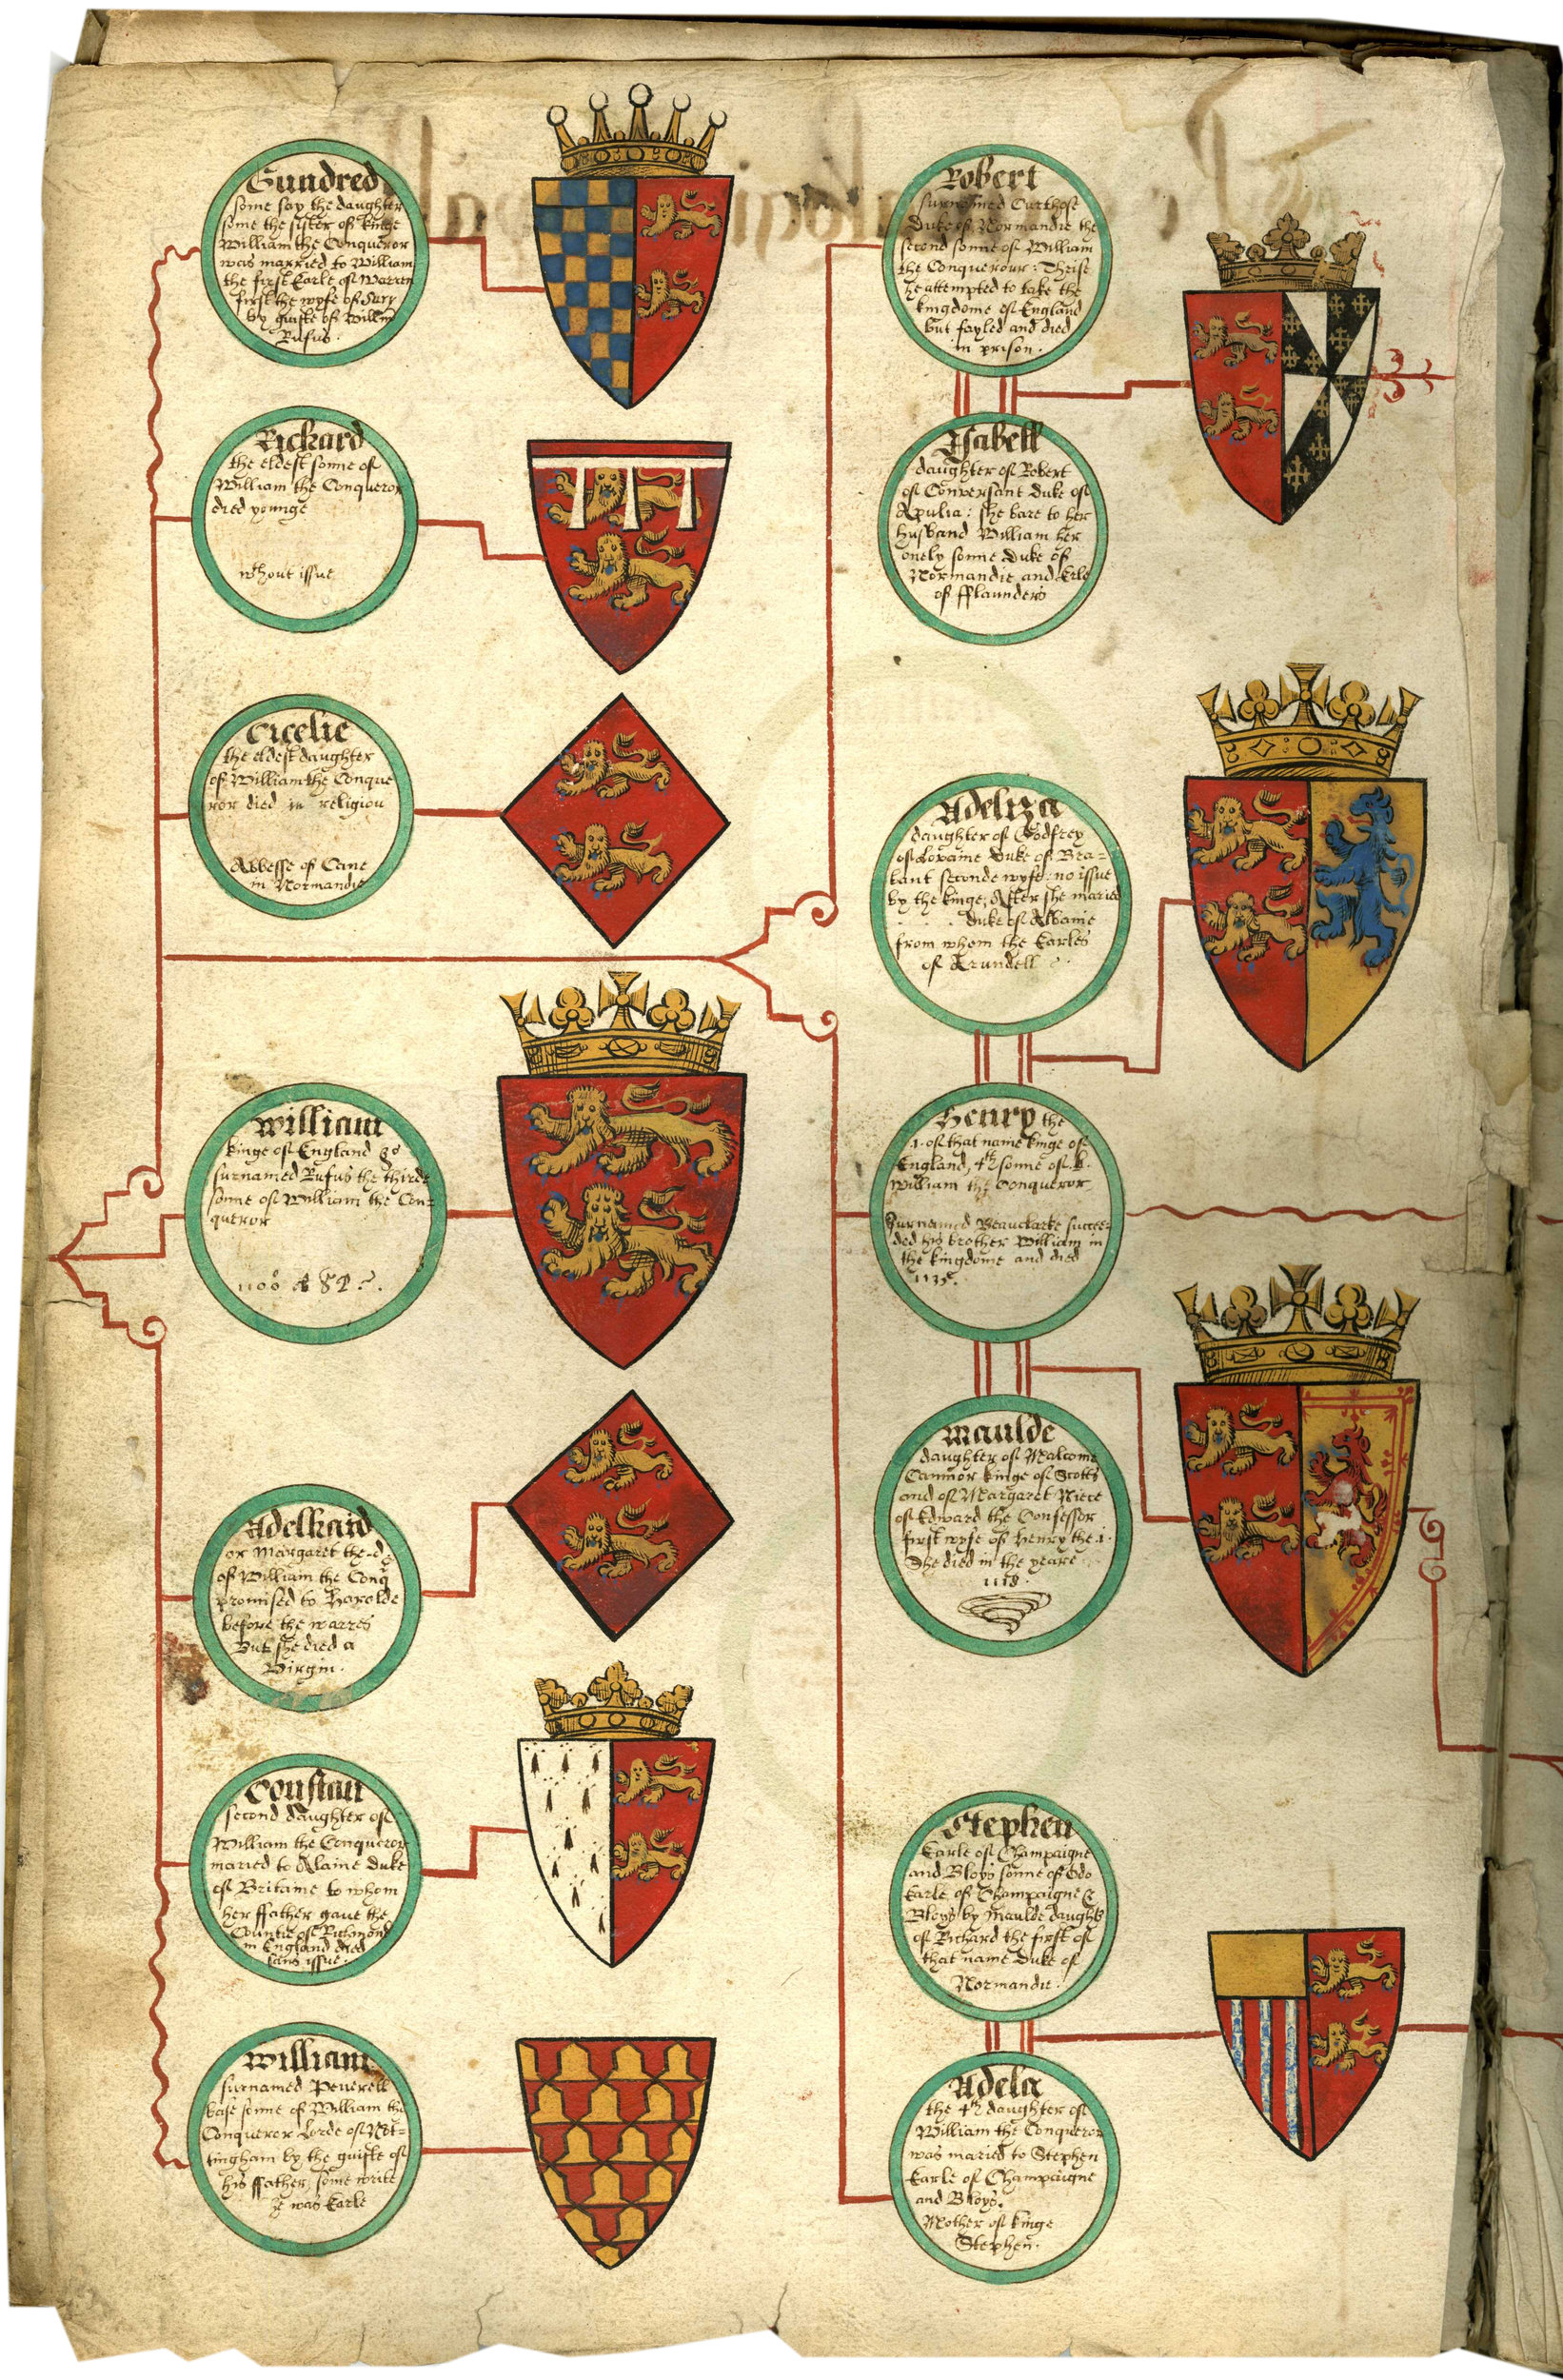 Gundred
some say the daughter
some the sister of kinge
William the Conqueror
was married to William
the first Earle of Warren
first the wyfe of Sury
by guifte of Willm
Rufus.
Richard
the eldest sonne of
William the Conqueror
died younge
wthout issue
Cicelie
the eldest daughter
of William the Conque
ror died in religion
Abbesse of Cane
in Normandie
William
kinge of England
surnamed Rufus the third
sonne of William the Con=
queror
1100
Adelhaid
or Margaret the
of William the Conq
promised to Harolde
before the warres
But she died a
Virgin.
Constan
second daughter of
William the Conqueror
maried to Alaine Duke
of Britaine to whom
her ffather gave the
Countie of Richmond
in England died
sans issue.
William
surnamed Peverell
base sonne of William the
Conqueror Lorde of Not=
tingham by the guifte of
his ffather, some write
he was Earle
Robert
surnamed Curthose
Duke of Normandie the
second sonne of William
the Conquerour: Thrise
he attempted to take the
kingdome of England
but fayled and died
in prison.
Isabell
daughter of Robert
of Conversant Duke of
Apulia: she bare to her
husband William her
onely sonne Duke of
Normandie and Erle
of fflaunders
Adeliza
daughter of Godfrey
of Loraine Duke of Bra=
bant seconde wyfe: no issue
by the kinge; After she maried
. . . Duke of Albanie
from whom the Earles
of Arundell
Henry the
.1. of that name kinge of
England, 4th sonne of k.
William the Conqueror
Surnamed Beauclarke succee=
ded his brother William in
the kingdome and died
1135.
Maulde
daughter of Malcome
Canmor kinge of Scotts
and of Margaret Niece
of Edward the Confessor
first wyfe of Henry the .1.
She died in the yeare
1118.
Stephen
Earle of Champaigne
and Bloys sonne of Odo
Earle of Champaigne &
Bloys by Maulde daught
of Richard the first of
that name Duke of
Normandie.
Adela
the 4th daughter of
William the Conqueror
was maried to Stephen
Earle of Champaigne
and Bloys.
Mother of kinge
Stephen.